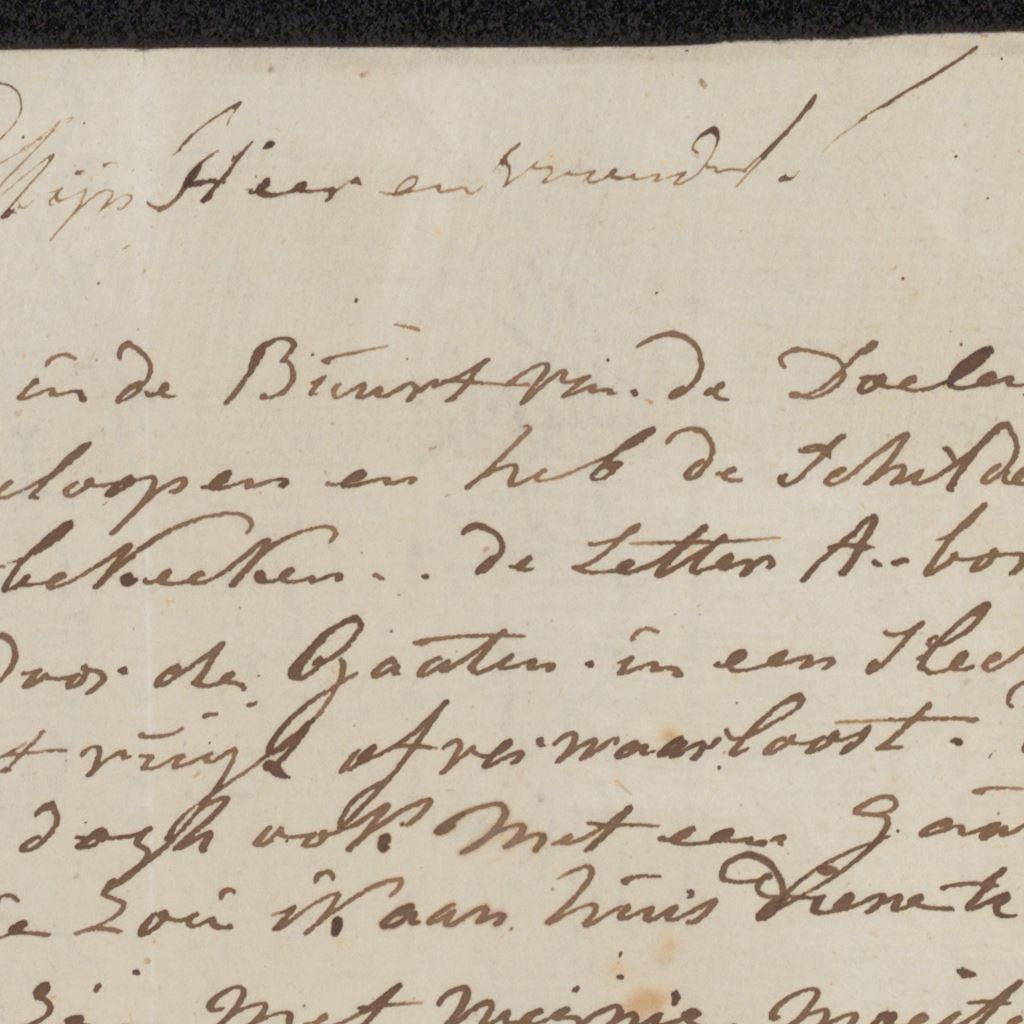 Mijn Heer en vriend!
in de Buurt van de Doelen
eloopen en heb de Schilde
bekeeken.. de Letter A.. bor
door de Gaaten. in een Slec
t ruijgt of verwaarloost.
dogh ook Met een Gaa
Zou ik aan huis Diene te
Zij. Met